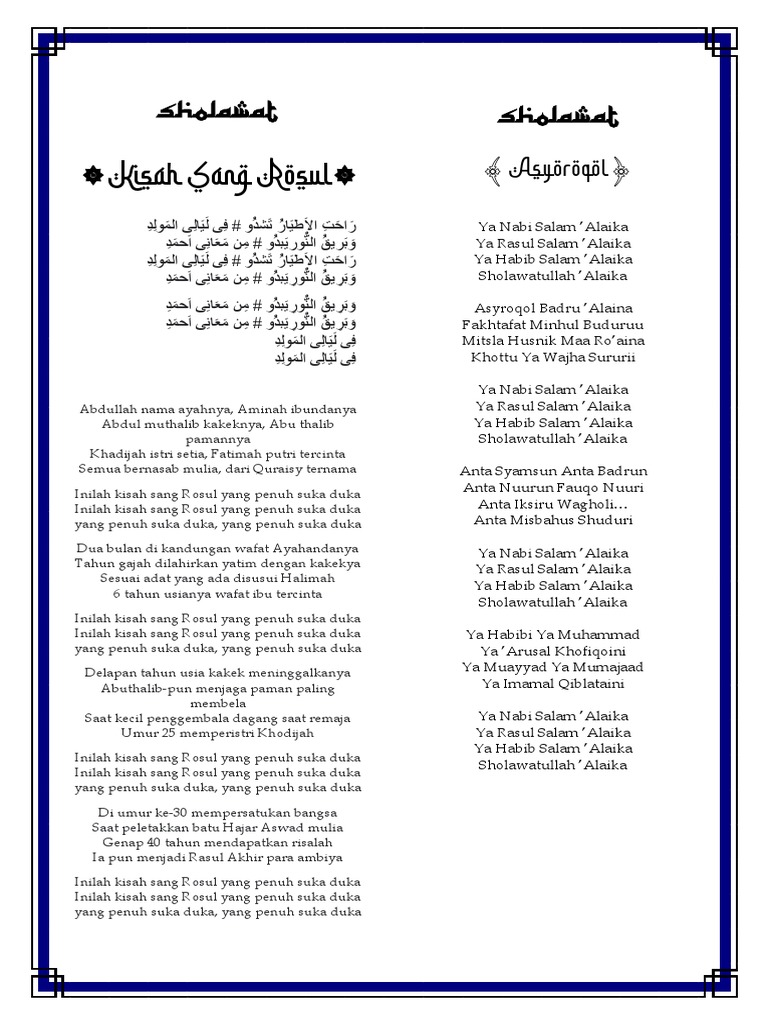 Sholawat
Kisah Sang Rosul
رَاحَتِ الاَطيَارُ تَشدُو # فِى لَيَالِى المَولِدِ
وَبَرِيقُ النُّورِ يَبدُو # مِن مَعَانِى اَحمَدِ
رَاحَتِ الاَطيَارُ تَشدُو # فِى لَيَالِى المَولِدِ
وَبَرِيقُ النُّورِ يَبدُو # مِن مَعَانِى اَحمَدِ
وَبَرِيقُ النُّورِ يَبدُو # مِن مَعَانِى اَحمَدِ
وَبَرِيقُ النُّورِ يَبدُو # مِن مَعَانِى اَحمَدِ
فِى لَيَالِى المَولِدِ
فِى لَيَالِى المَولِدِ
Abdullah nama ayahnya, Aminah ibundanya
Abdul muthalib kakeknya, Abu thalib
pamannya
Khadijah istri setia, Fatimah putri tercinta
Semua bernasab mulia, dari Quraisy ternama
Inilah kisah sang Rosul yang penuh suka duka
Inilah kisah sang Rosul yang penuh suka duka
yang penuh suka duka, yang penuh suka duka
Dua bulan di kandungan wafat Ayahandanya
Tahun gajah dilahirkan yatim dengan kakekya
Sesuai adat yang ada disusui Halimah
6 tahun usianya wafat ibu tercinta
Inilah kisah sang Rosul yang penuh suka duka
Inilah kisah sang Rosul yang penuh suka duka
yang penuh suka duka, yang penuh suka duka
Delapan tahun usia kakek meninggalkanya
Abuthalib-pun menjaga paman paling
membela
Saat kecil penggembala dagang saat remaja
Umur 25 memperistri Khodijah
Inilah kisah sang Rosul yang penuh suka duka
Inilah kisah sang Rosul yang penuh suka duka
yang penuh suka duka, yang penuh suka duka
Di umur ke-30 mempersatukan bangsa
Saat peletakkan batu Hajar Aswad mulia
Genap 40 tahun mendapatkan risalah
Ia pun menjadi Rasul Akhir para ambiya
Inilah kisah sang Rosul yang penuh suka duka
Inilah kisah sang Rosul yang penuh suka duka
yang penuh suka duka, yang penuh suka duka
Sholawat
Asyöröqöl
Ya Nabi Salam 'Alaika
Ya Rasul Salam 'Alaika
Ya Habib Salam 'Alaika
Sholawatullah 'Alaika
Asyroqol Badru 'Alaina
Fakhtafat Minhul Buduruu
Mitsla Husnik Maa Ro'aina
Khottu Ya Wajha Sururii
Ya Nabi Salam 'Alaika
Ya Rasul Salam 'Alaika
Ya Habib Salam 'Alaika
Sholawatullah 'Alaika
Anta Syamsun Anta Badrun
Anta Nuurun Fauqo Nuuri
Anta Iksiru Wagholi…
Anta Misbahus Shuduri
Ya Nabi Salam 'Alaika
Ya Rasul Salam 'Alaika
Ya Habib Salam 'Alaika
Sholawatullah 'Alaika
Ya Habibi Ya Muhammad
Ya 'Arusal Khofiqoini
Ya Muayyad Ya Mumajaad
Ya Imamal Qiblataini
Ya Nabi Salam 'Alaika
Ya Rasul Salam 'Alaika
Ya Habib Salam 'Alaika
Sholawatullah 'Alaika